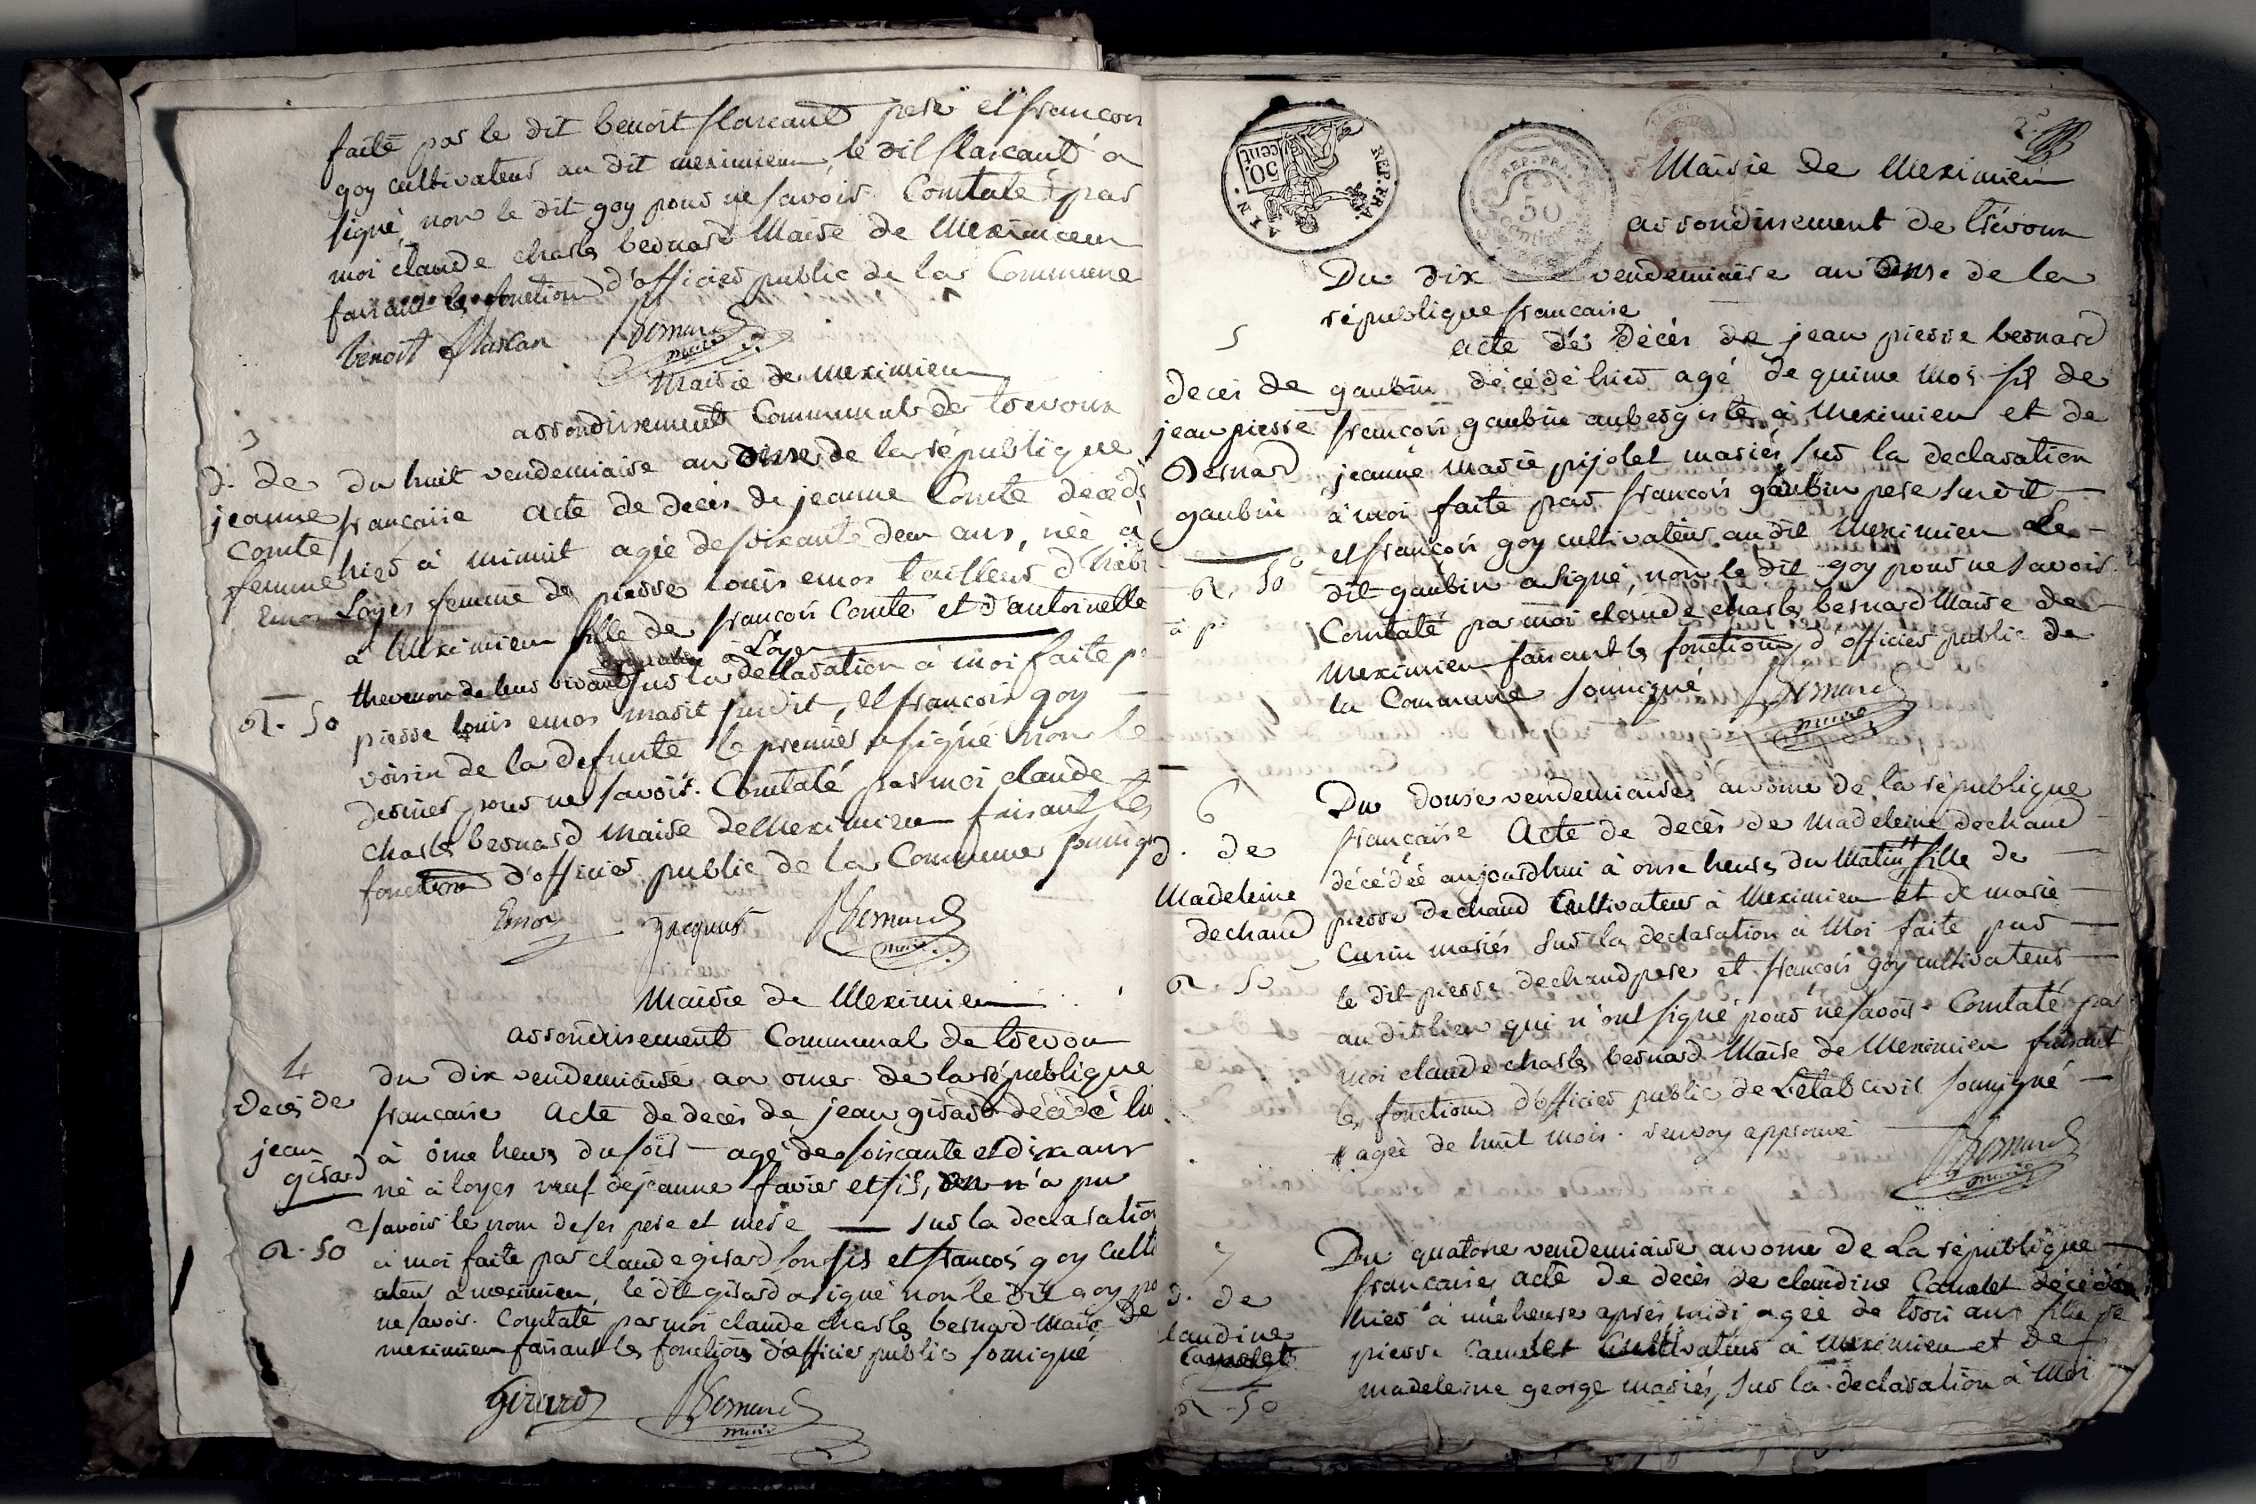 faite par le dit benoit flascant pere et francois
goy cultivateur au dit meximieux le dit flascant a
signé non le dit goy pour ne savoir. Constaté par
moi claude charles bernard Maire de Meximieux
faisant les fonctions d'officier public de la Commune
benoit flascan Bernard
maire
Mairie de meximieux
arrondissement Communal de trevoux
3
d. de
jeanne
Comte
femme
Emor
2. 50
du huit vendemiaire an onse de la république
francaise acte de decès de jeanne Comte décédé
hier à minuit agée de soixante deux ans, née à
Loyes femme de pierre louis emor tailleur d'habi
a Meximieux fille de francois Comte et d'antoinette
thevenon de leur vivant à Loyes sur la declaration à moi faite p
pierre louis emor marit susdit, et francois goy
voisin de la defunte le premier a signé non le
dernier pour ne savoir. Constaté par moi claude
charles bernard Maire de Meximieux faisant les
fonctions d'officier public de la Commune soussigné
Emor Jacquet Bernard
maire
Mairie de Meximieux
arrondissement Communal de trevoux
4
Decès de
jean
girard
2. 50
du dix vendemiaire an onse de la république
francaise acte de decès de jean girard décédé hier
à onse heures du soir agé de soixante et dix ans
né à loyes veuf de jeanne favier et fils, on n'a pu
savoir le nom de ses pere et mere sur la declaration
à moi faite par claude girard son fils et francois goy culti
ateur à meximieux, le dit girard a signé non le dit goy po
ne savoir. Constaté par moi claude charles bernard Maire de
meximieux faisant les fonctions d'officier public soussigné
Girard Bernard
maire
2.
REP. FRA.
50. cent
AIN.
REP. FRA.
50
Centimes
Mairie de Meximieux
arrondissement de trévoux
Du dix vendemiaire an onse de la
république francaise
5
deces de
jean pierre
Bernard
gaubin
2. 50
acte de décès de jean pierre bernard
gaubin décédé hier agé de quinse mois fils de
francois gaubin aubergiste à Meximieux et de
jeanne marie pijolet mariés, sur la declaration
à moi faite par francois gaubin pere susdit
et francois goy cultivateur au dit Meximieux le
dit gaubin a signé, non le dit goy pour ne savoir.
Constaté par moi claude charles bernard Maire de
Meximieux faisant les fonctions d'officier public de
la Commune soussigné Bernard
maire
6
d. de
Madeleine
dechaud
2 50
Du douse vendemiaire an onse de la république
francaise Acte de decès de Madeleine dechaud
décédée aujourdhui à onse heures du Matin # fille de
pierre dechaud Cultivateur à Meximieux et de marie
Curin mariés sur la declaration à Moi faite par
le dit pierre dechaud pere et francois goy cultivateur
au dit lieu qui n'ont signé pour ne savoir. Constaté par
Moi claude charles bernard Maire de Meximieux faisant
les fonctions d'officier public de L'etat Civil soussigné
# agée de huit mois. renvoy approuvé
Bernard
maire
7
d. de
laudine
Camelet
2 . 50
Du quatorse vendemiaire an onse de La république
francaise, acte de decès de claudine Camelet décédée
hier à une heure après midi agée de trois ans fille de
pierre Camelet Cultivateur à Meximieux et de
madeleine george mariés, sur la declaration à Moi